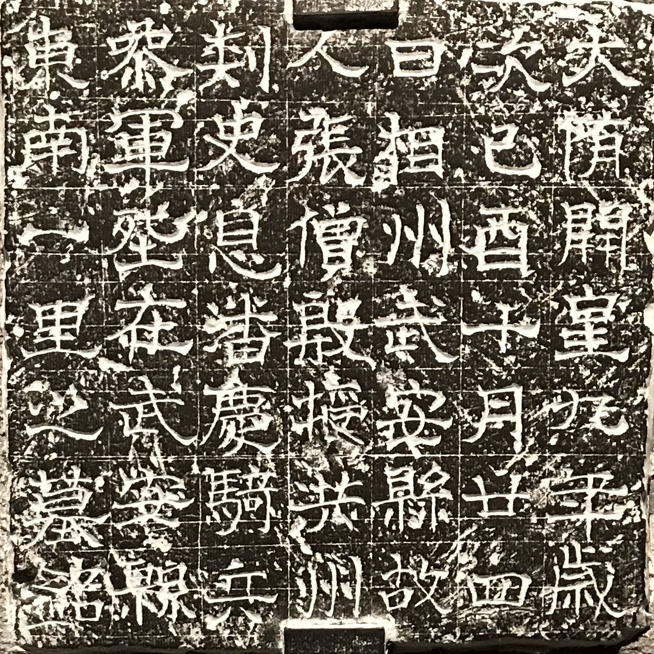 大隋開皇九年歲
次己酉十月廿四
日相州武安縣故
人張僧殷授共州
刺史息潘慶騎兵
參軍在武安縣
東南一里之墓銘